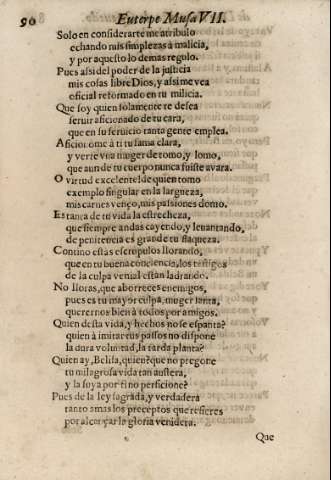 90 Euterpe Musa VII.
Solo en considerarte me atribulo
echando mis simplezas à malicia,
y por aquesto lo demas regulo.
Pues assi del poder de la justicia
mis cosas libre Dios, y assi me vea
oficial reformado en tu milicia.
Que soy quien solamente te desea
seruir aficionado de tu cara,
que en su seruicio tanta gente emplea.
Aficioneme à ti tu fama clara,
y verte vna muger de tomo, y lomo,
que aun de tu cuerpo nunca fuiste auara.
O virtud excelente! de quien tomo
exemplo singular en la largueza,
mis carnes venço, mis passiones domo.
Es tanta de tu vida la estrecheza,
que siempre andas cayendo, y leuantando,
de penitencia es grande tu flaqueza.
Contino estàs escrupulos llorando,
que en tu buena conciencia, los testigos
de la culpa venial estàn ladrando.
No lloras, que aborreces enemigos,
pues es tu mayor culpa, muger santa,
querernos bien à todos por amigos.
Quien desta vida, y hechos no se espanta?
quien à imitar tus passos no dispone
la dura voluntad, la tarda planta?
Quien ay, Belisa, quien? que no pregone
tu milagrosa vida tan austera,
y la suya por ti no perficione?
Pues de la ley sagrada, y verdadera
tanto amas los preceptos que refieres
por alcançar la gloria venidera.
Que